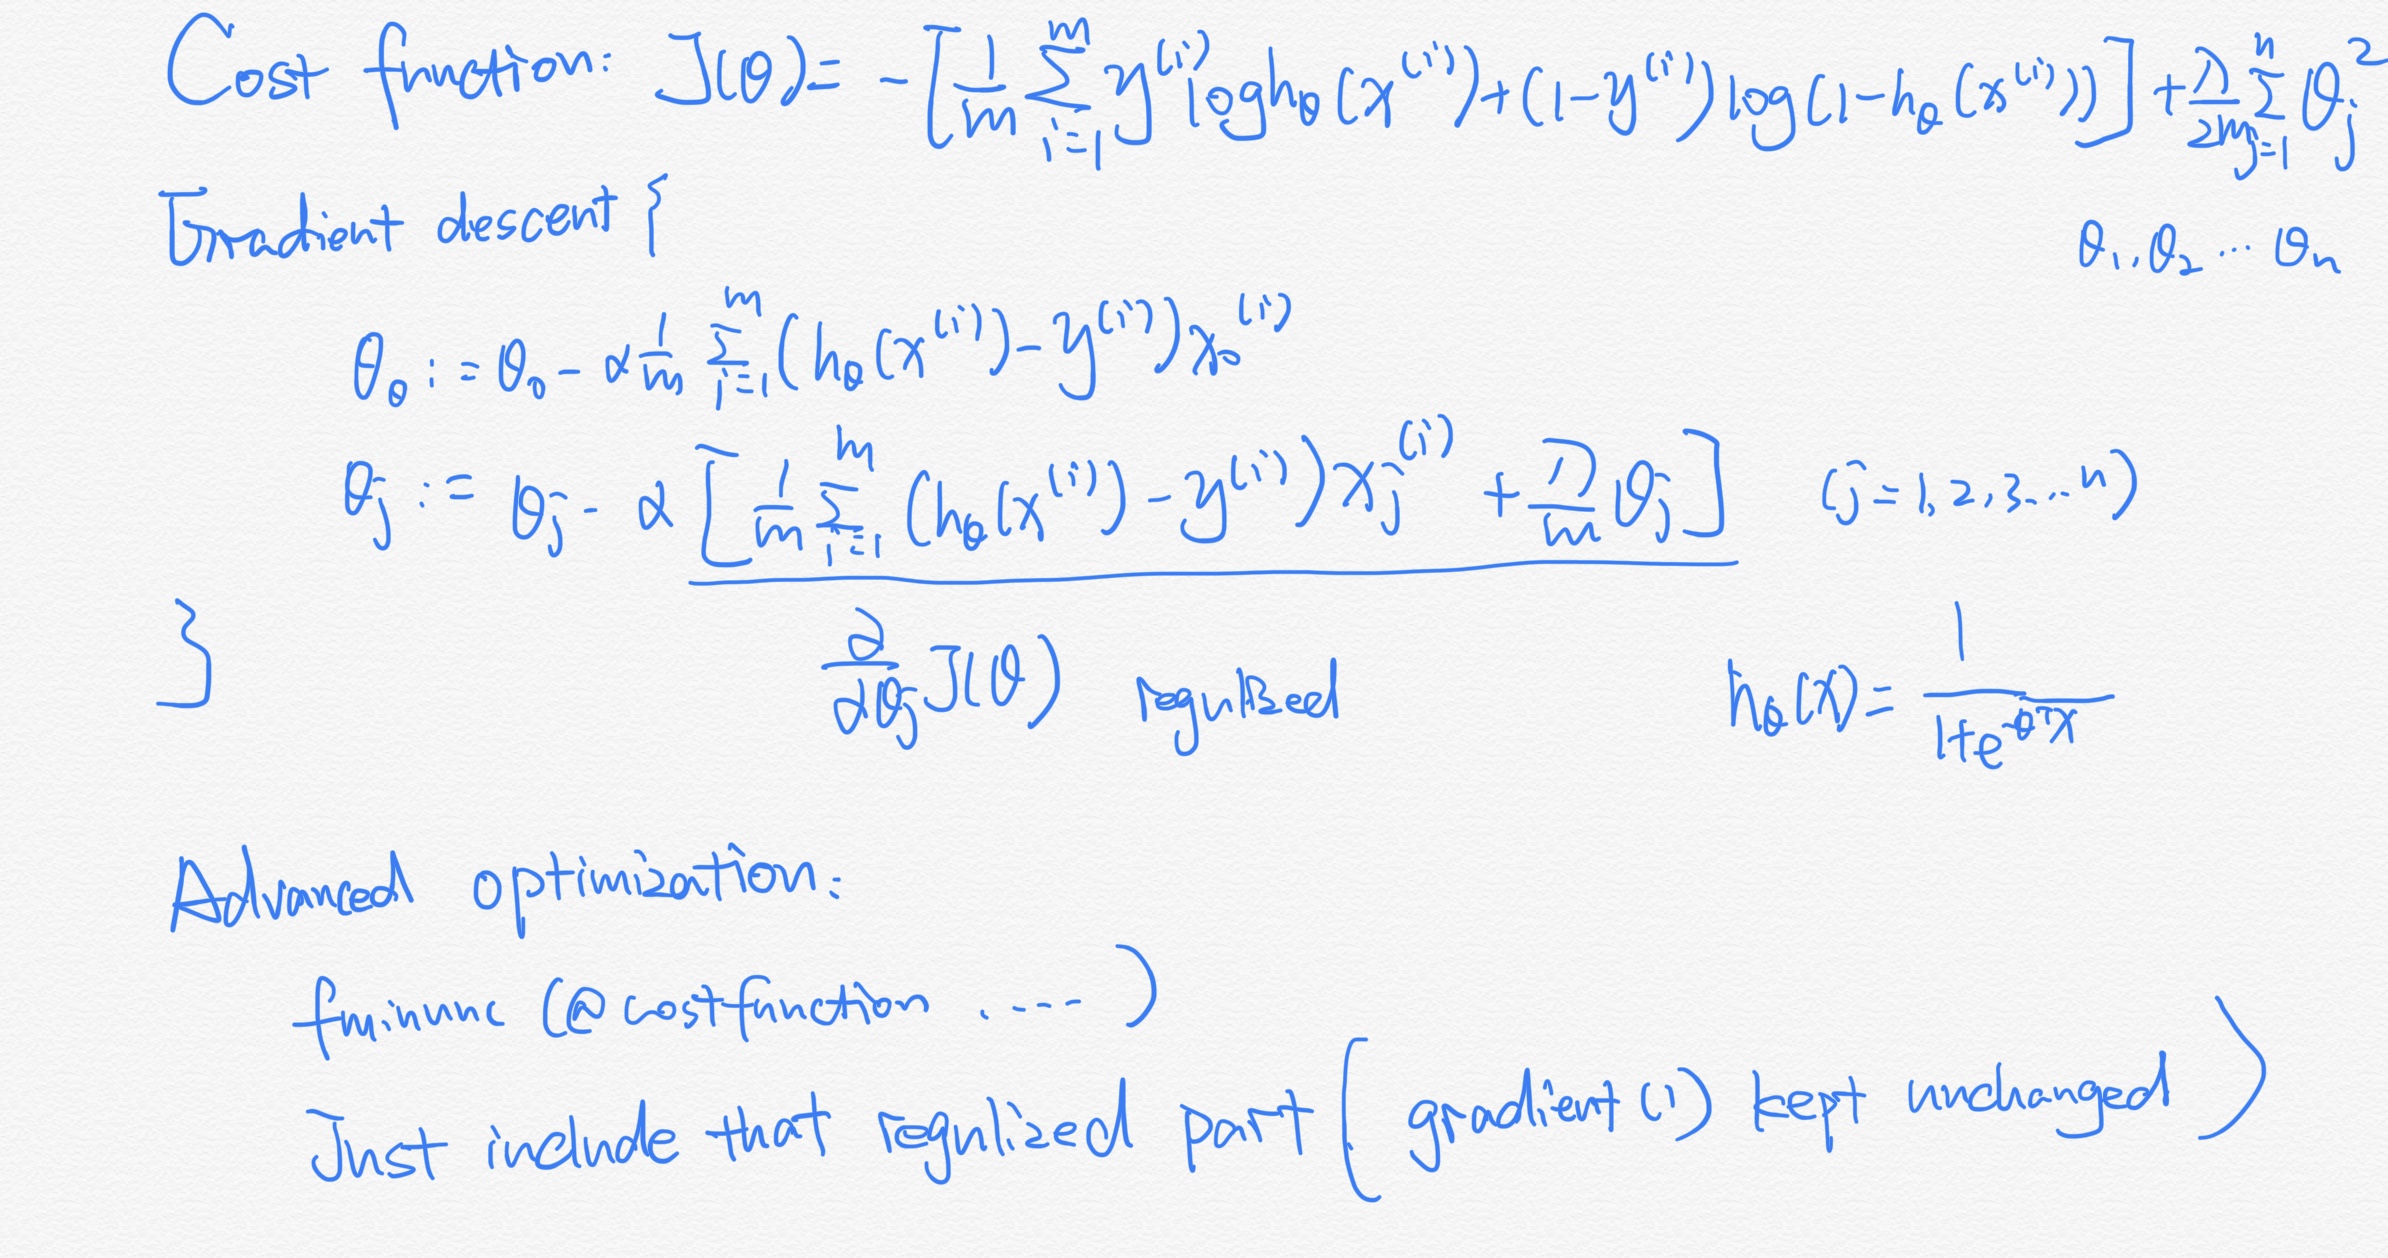 Cost function: J(θ) = -[1/m Σ_{i=1}^{m} y^{(i)} log h_θ(x^{(i)}) + (1-y^{(i)}) log(1-h_θ(x^{(i)}))] + λ/2m Σ_{j=1}^{n} θ_j^2
Gradient descent {
θ_1, θ_2 ... θ_n
θ_0 := θ_0 - α 1/m Σ_{i=1}^{m} (h_θ(x^{(i)}) - y^{(i)}) x_0^{(i)}
θ_j := θ_j - α [1/m Σ_{i=1}^{m} (h_θ(x^{(i)}) - y^{(i)}) x_j^{(i)} + λ/m θ_j] (j = 1, 2, 3... n)
}
∂/∂θ_j J(θ) regulized
h_θ(x) = 1/(1+e^{-θ^T x})
Advanced optimization:
fminunc (@costfunction ....)
Just include that regulized part (gradient(1) kept unchanged)